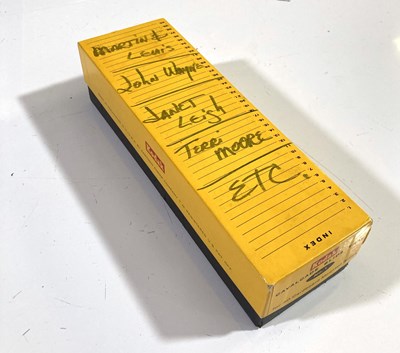 MARTIN &
LEWIS
JOHN WAYNE
JANET
LEIGH
TERRI
MOORE
ETC.
INDEX
CAVALCADE